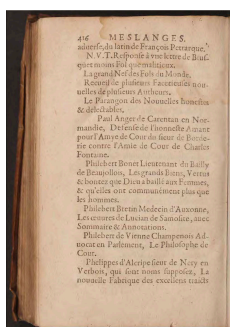 416 MESLANGES.
aduerse, du latin de François Petrarque,
N. V. T. Response à vne lettre de Brus-
quet moins Fol que malitieux.
La grand Nef des Fols du Monde.
Recueil de plusieurs Facetieuses nou-
uelles de plusieurs Autheurs.
Le Parangon des Nouuelles honnestes
& delectables.
Paul Anger de Carentan en Nor-
mandie, Defense de l'honneste Amant
pour l'Amye de Cour du sieur de Borde-
rie contre l'Amie de Cour de Charles
Fontaine.
Philebert Bonet Lieutenant du Bailly
de Beaujollois, Les grands Biens, Vertus
& bontez que Dieu a baillé aux Femmes,
& qu'elles ont communément plus que
les hommes.
Philebert Bretin Medecin d'Auxonne,
Les œuures de Lucian de Samosate, auec
Sommaire & Annotations.
Philebert de Vienne Champenois Ad-
uocat en Parlement, Le Philosophe de
Cour.
Phelippes d'Alcripe sieur de Nery en
Verbois, qui sont noms supposez, La
nouuelle Fabrique des excellens traicts